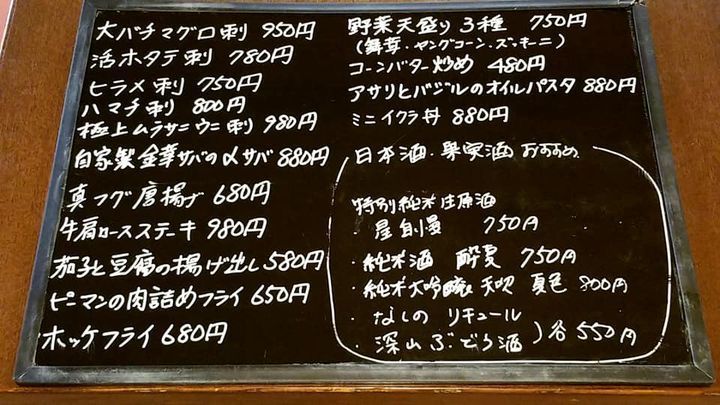 大バチマグロ刺 950円
活ホタテ刺 780円
ヒラメ刺 750円
ハマチ刺 800円
極上ムラサキウニ刺 980円
自家製金華サバの〆サバ 880円
真フグ唐揚げ 680円
牛肩ロースステーキ 980円
茄子と豆腐の揚げ出し 580円
ピーマンの肉詰めフライ 650円
ホッケフライ 680円
野菜天盛り3種 750円
(舞茸・ヤングコーン・ズッキーニ)
コーンバター炒め 480円
アサリとバジルのオイルパスタ 880円
ミニイクラ丼 880円
日本酒・果実酒 おすすめ
特別純米生原酒
屋自慢 750円
・純米酒 酔夏 750円
・純米大吟醸 天吹 夏色 800円
・なしの リキュール
・深山ぶどう酒 )各550円